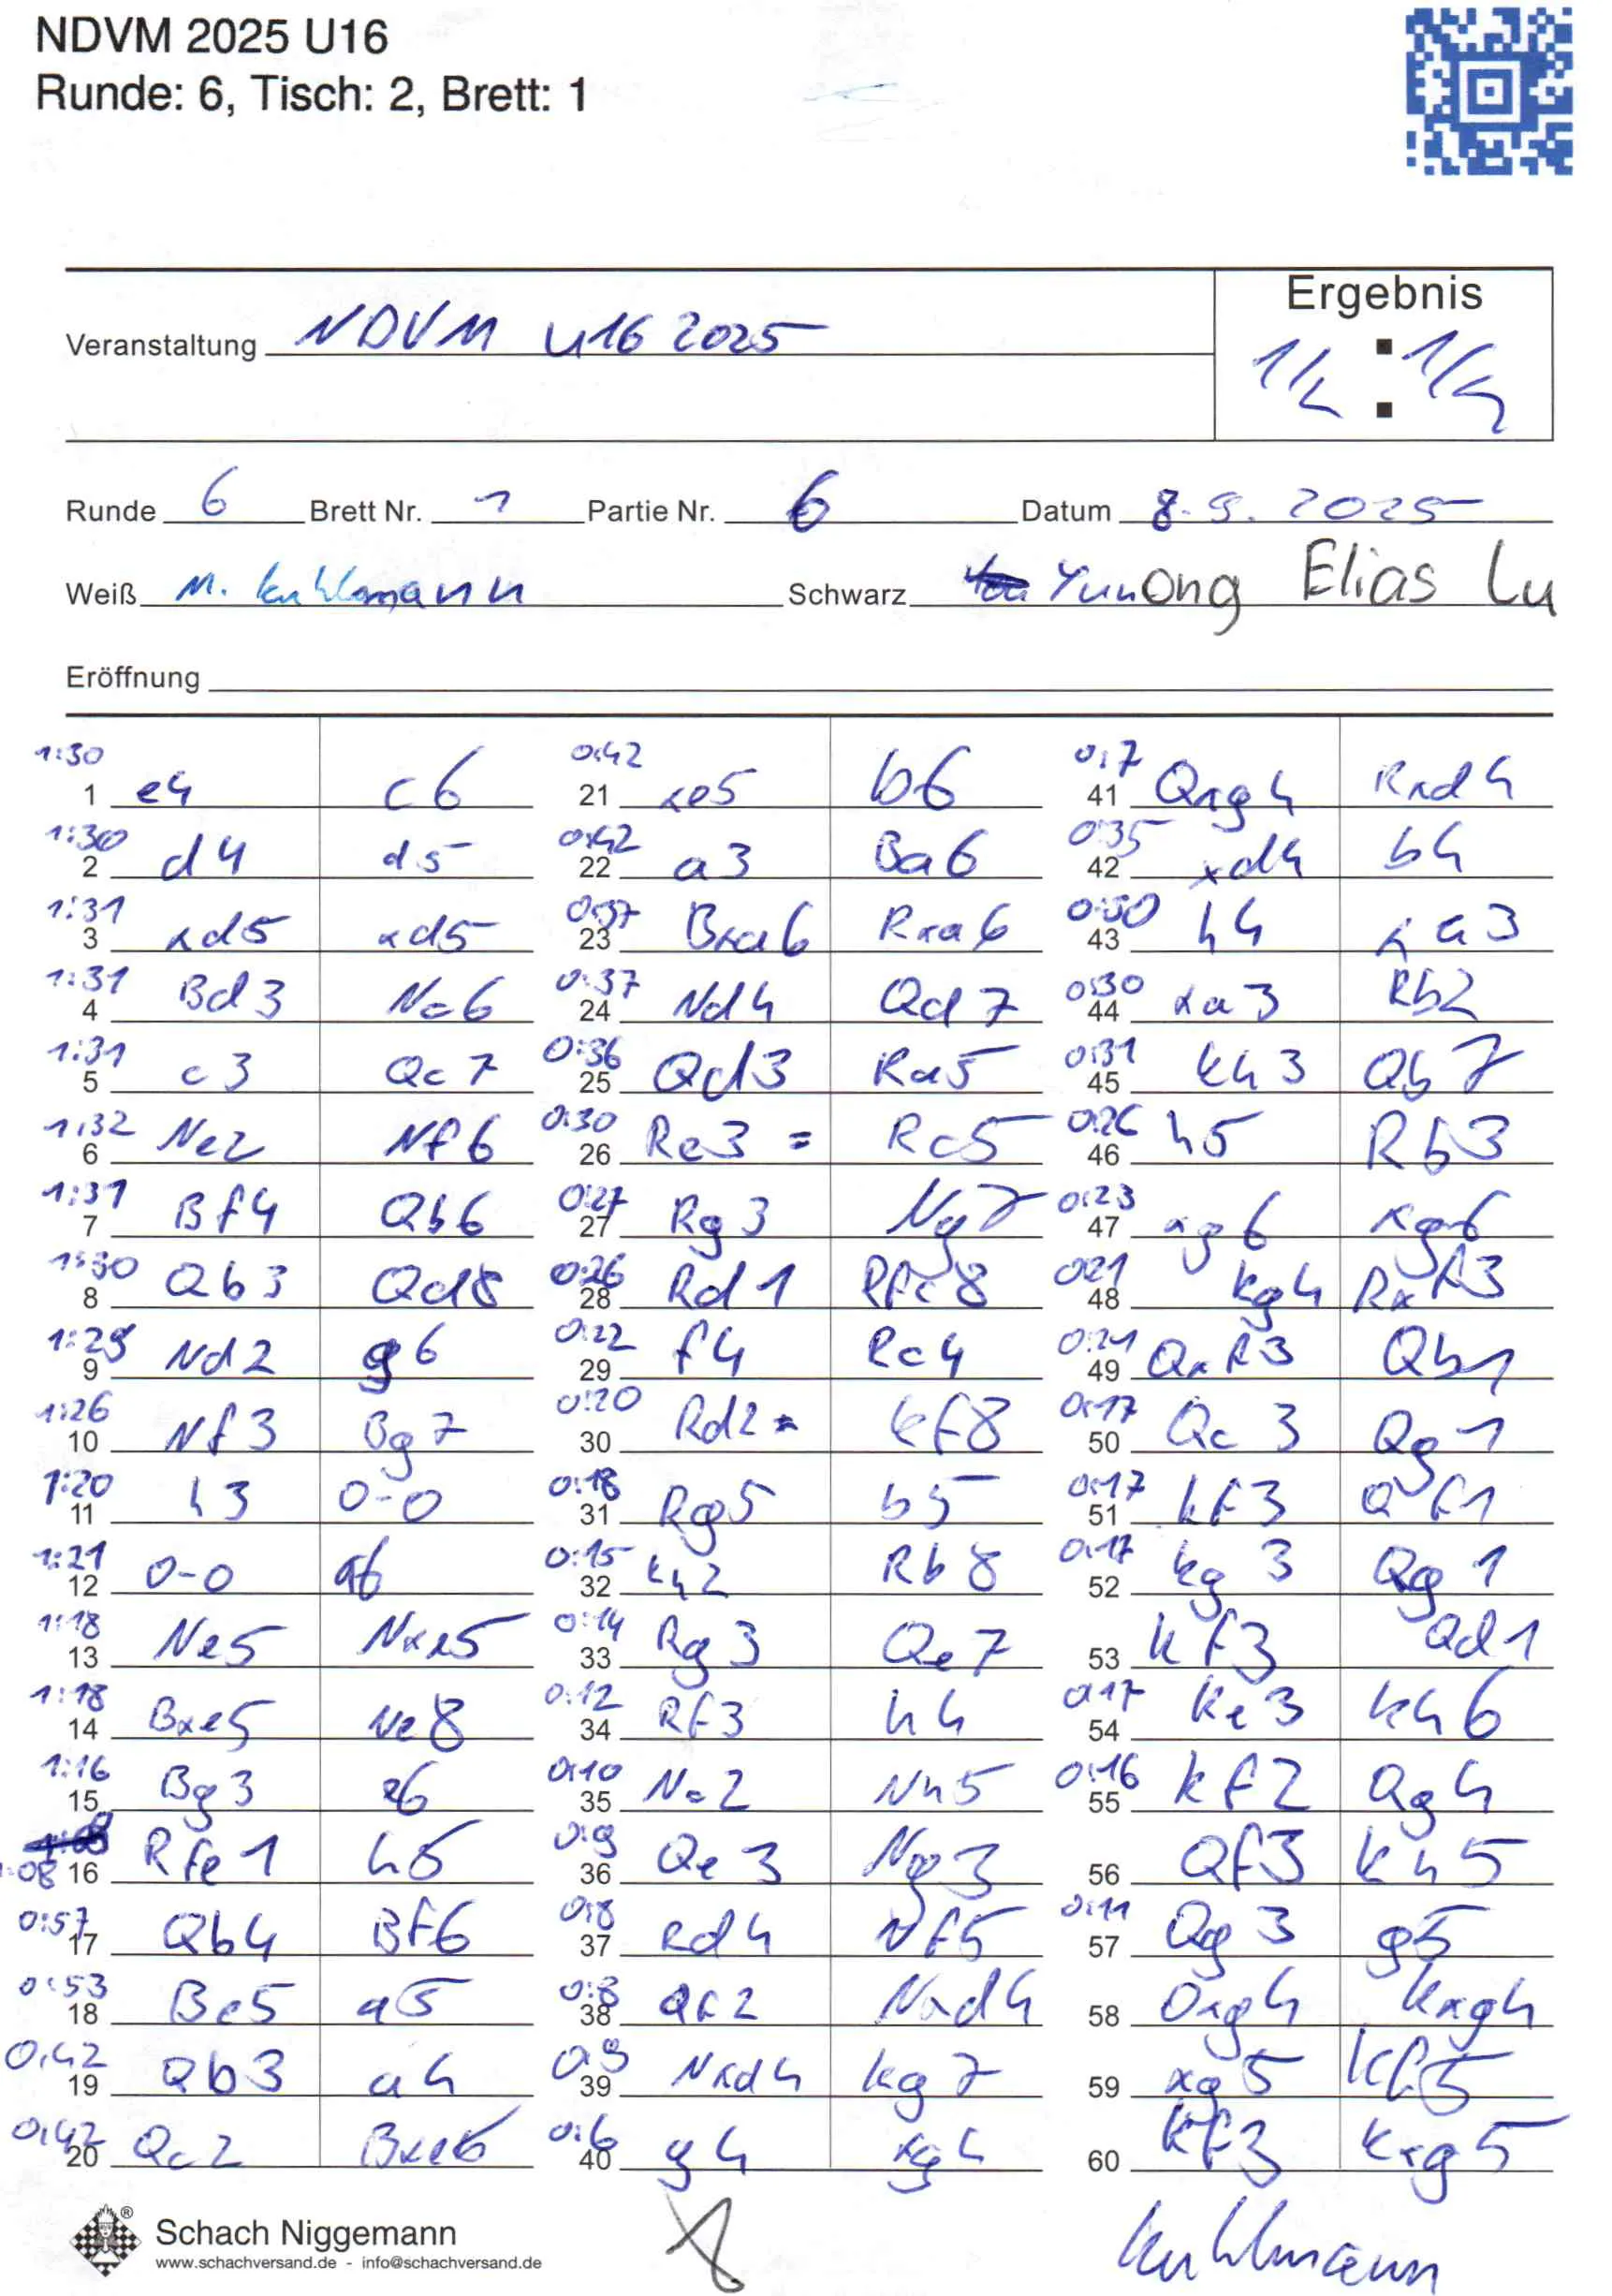 NDVM 2025 U16
Runde: 6, Tisch: 2, Brett: 1
Ergebnis
Veranstaltung NDVM U16 2025
1/2 : 1/2
Runde 6 Brett Nr. 1 Partie Nr. 6 Datum 8.9.2025
Weiß M. Kuhlmann Schwarz Yunong Elias Lu
Eröffnung
1:30 1 e4 c6
1:30 2 d4 d5
1:31 3 xd5 xd5
1:31 4 Bd3 Nc6
1:31 5 c3 Qc7
1:32 6 Ne2 Nf6
1:31 7 Bf4 Qb6
1:30 8 Qb3 Qd8
1:29 9 Nd2 g6
1:26 10 Nf3 Bg7
1:20 11 h3 0-0
1:21 12 0-0 a6
1:18 13 Ne5 Nxe5
1:18 14 Bxe5 Ne8
1:16 15 Bg3 e6
1:08 16 Rfe1 h5
0:57 17 Qb4 Bf6
0:53 18 Be5 a5
0:42 19 Qb3 a4
0:42 20 Qc2 Bxe5
0:42 21 xe5 b6
0:42 22 a3 Ba6
0:37 23 Bxa6 Rxa6
0:37 24 Nd4 Qd7
0:36 25 Qd3 Ra5
0:30 26 Re3 = Rc5
0:27 27 Rg3 Ng7
0:26 28 Rd1 Rfc8
0:22 29 f4 Rc4
0:20 30 Rd2 = Kf8
0:18 31 Rg5 b5
0:15 32 Kh2 Rb8
0:14 33 Rg3 Qe7
0:12 34 Rf3 h4
0:10 35 Nc2 Nh5
0:9 36 Qe3 Ng3
0:8 37 Rd4 Nf5
0:8 38 Qf2 Nxd4
0:9 39 Nxd4 Kg7
0:6 40 g4 xg4
0:7 41 Qxg4 Rxd4
0:35 42 xd4 b4
0:30 43 h4 xa3
0:30 44 xa3 Rb2
0:31 45 Kh3 Qb7
0:26 46 h5 Rb3
0:23 47 xg6 xg6
0:21 48 Kg4 Rxf3
0:21 49 Qxf3 Qb1
0:17 50 Qc3 Qg1
0:17 51 Kf3 Qf1
0:17 52 Kg3 Qg1
53 Kf3 Qd1
0:17 54 Ke3 Kh6
0:16 55 Kf2 Qg4
56 Qf3 Kh5
0:11 57 Qg3 g5
58 Qxg4 Kxg4
59 xg5 Kf5
60 Kf3 Kxg5
Schach Niggemann
www.schachversand.de - info@schachversand.de
Kuhlmann